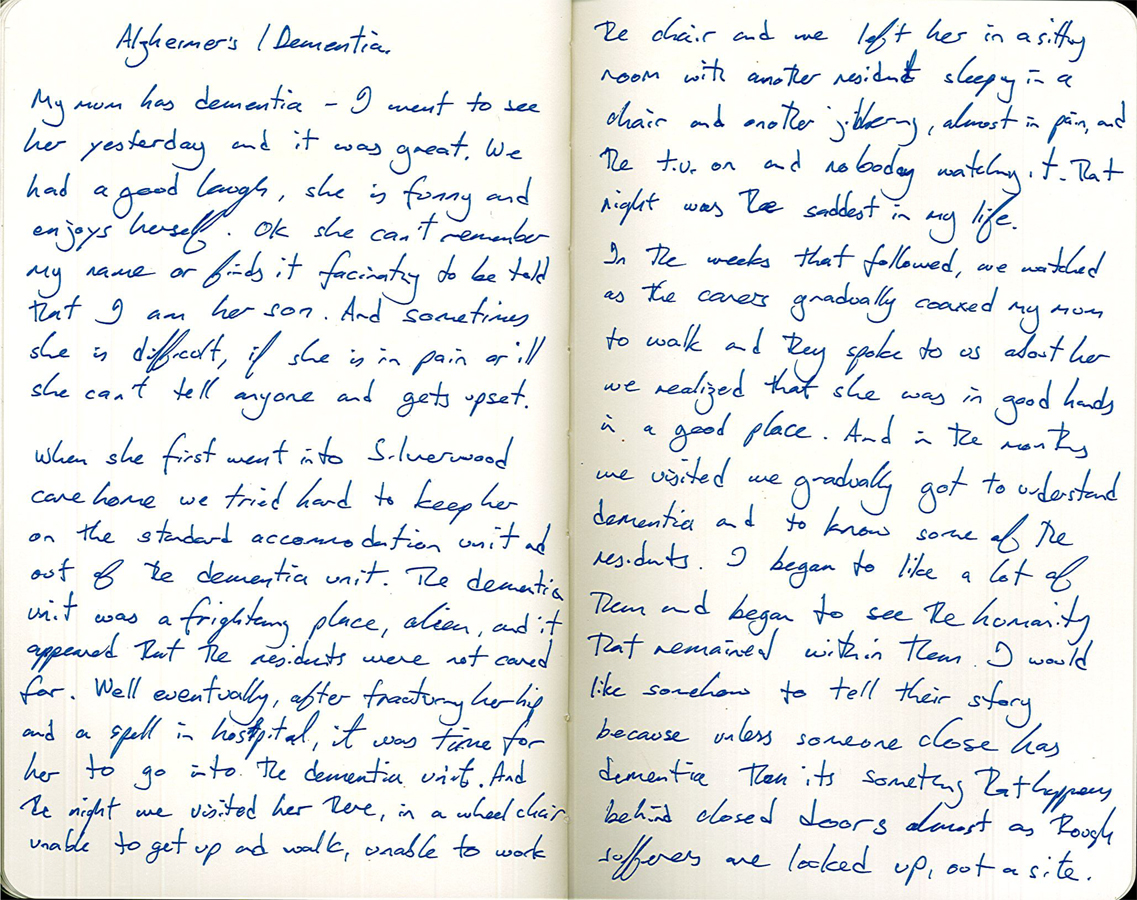 Alzheimer's / Dementia.
My mum has dementia - I went to see
her yesterday and it was great. We
had a good laugh, she is funny and
enjoys herself. Ok she can't remember
my name or finds it facinating to be told
that I am her son. And sometimes
she is difficult, if she is in pain or ill
she can't tell anyone and gets upset.
When she first went into Silverwood
care home we tried hard to keep her
on the standard accommodation unit and
out of the dementia unit. The dementia
unit was a frightening place, alien, and it
appeared that the residents were not cared
for. Well eventually, after fracturing her hip
and a spell in hospital, it was time for
her to go into the dementia unit. And
the night we visited her there, in a wheel chair
unable to get up and walk, unable to work
the chair and we left her in a sitting
room with another resident sleeping in a
chair and another jibbering, almost in pain, and
the t.v. on and noboday watching it. That
night was the saddest in my life.
In the weeks that followed, we watched
as the carers gradually coaxed my mum
to walk and they spoke to us about her
we realized that she was in good hands
in a good place. And in the months
we visited we gradually got to understand
dementia and to know some of the
residents. I began to like a lot of
them and began to see the humanity
that remained within them. I would
like somehow to tell their story
because unless someone close has
dementia then its something that happens
behind closed doors almost as though
sufferers are locked up, out a site.